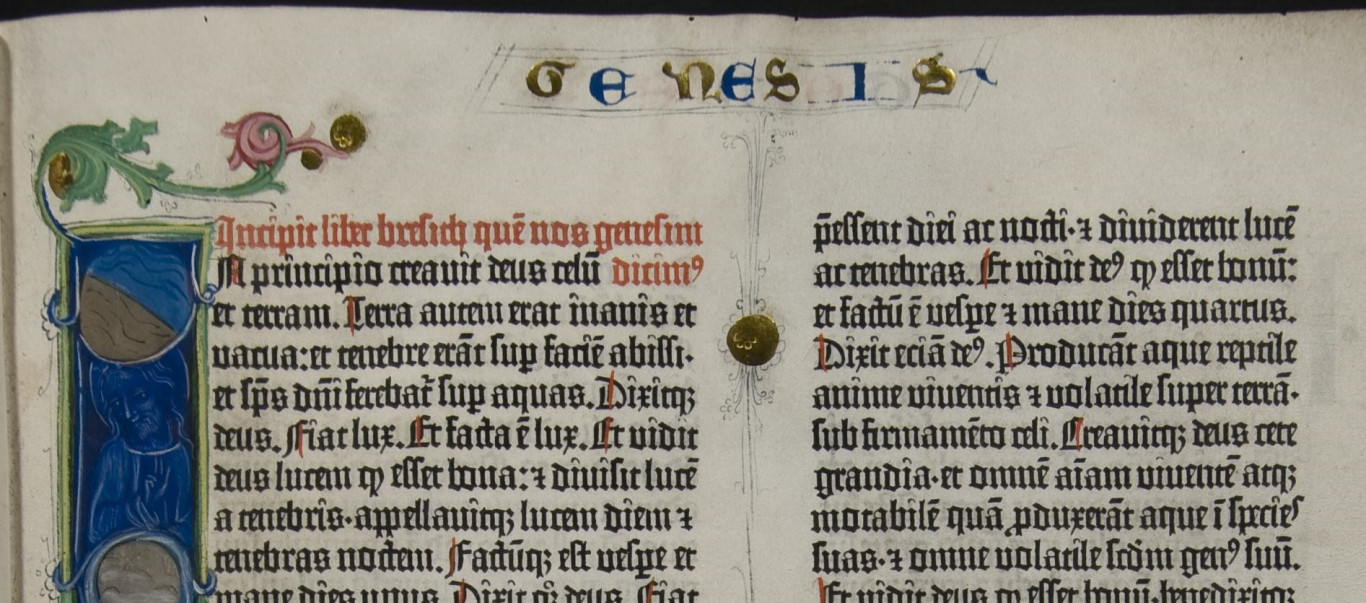 GENESIS
Incipit liber bresith quē nos genesim
IN principio creavit deus celū dicimꝰ
et terram. Terra autem erat inanis et
vacua: et tenebre erāt sup faciē abissi·
et sp̄s dn̄i ferebat᷑ sup aquas. Dixitqꝫ
deus. Fiat lux. Et facta ē lux. Et vidit
deus lucem ꝙ esset bona: ⁊ divisit lucē
a tenebris· appellavitqꝫ lucem diem ⁊
tenebras noctem. Factūqꝫ est vesꝑe et
mane dies unus. Dixit qꝫ deus. Fiat
p̄essent diei ac nocti· ⁊ dividerent lucē
ac tenebras. Et vidit deꝰ ꝙ esset bonū:
et factū ē vesꝑe ⁊ mane dies quartus.
Dixit eciā deꝰ. Producāt aque reptile
anime viventis ⁊ volatile super terrā·
sub firmamēto celi. Creavitqꝫ deus cete
grandia· et omnē aīam viventē atqꝫ
motabilē quā ꝓduxerāt aque ī species
suas· ⁊ omne volatile scd̄m genꝰ suū.
Et vidit deus ꝙ esset bonū· benedixitqꝫ